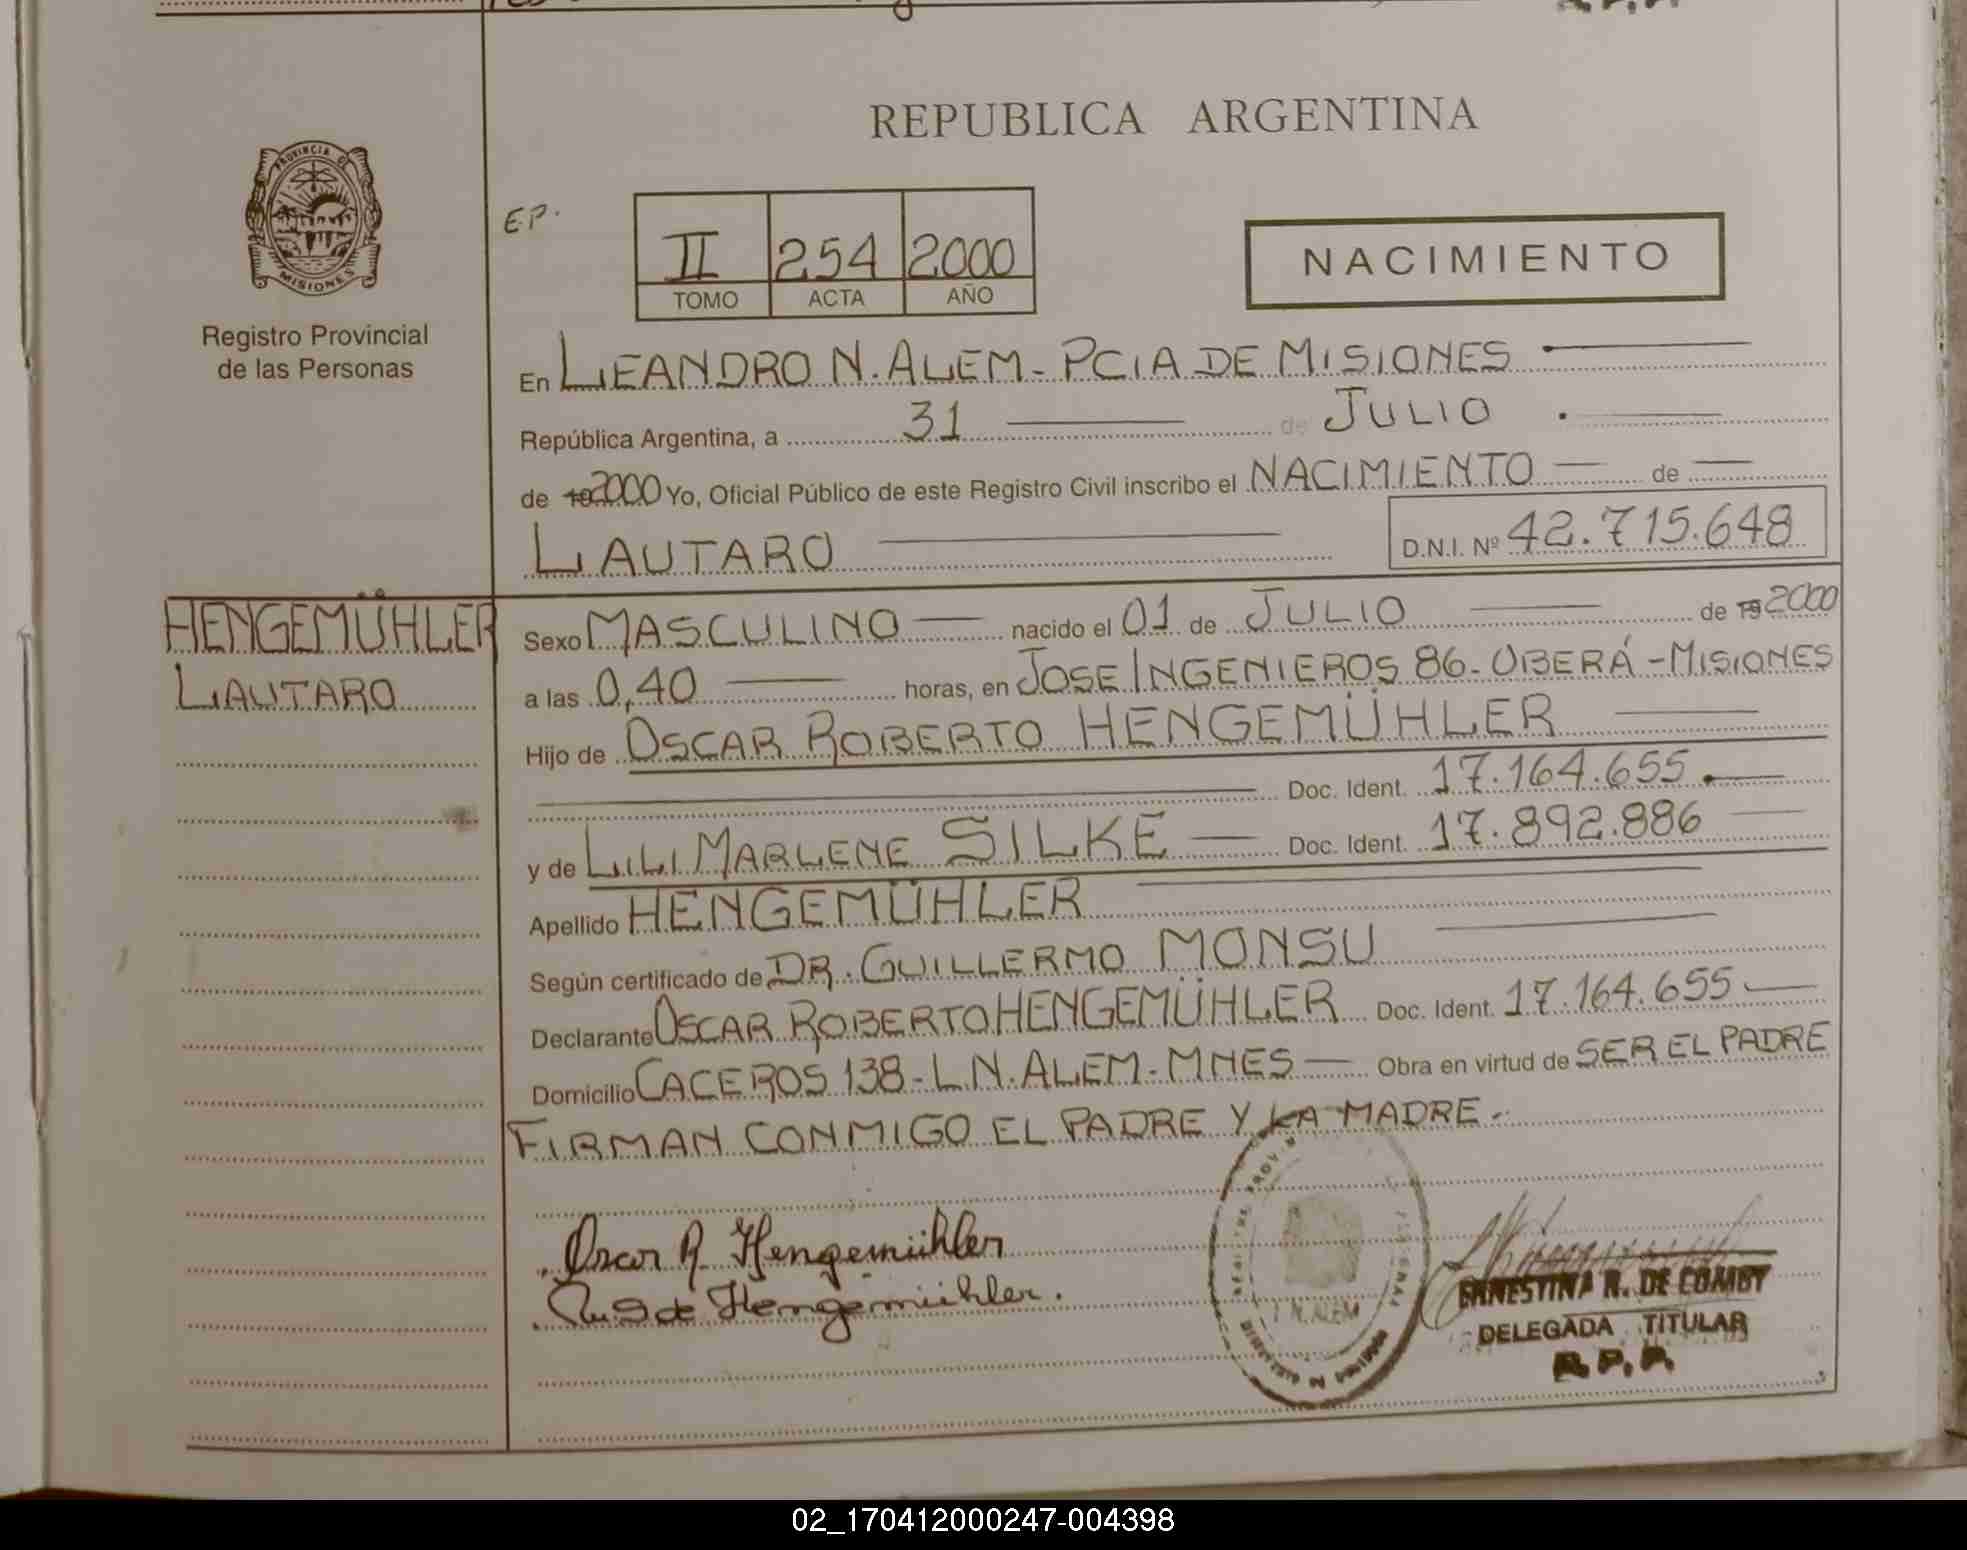 REPUBLICA ARGENTINA
PROVINCIA DE
MISIONES
Registro Provincial
de las Personas
E.P.
II 254 2000
TOMO ACTA AÑO
NACIMIENTO
En LEANDRO N. ALEM - PCIA DE MISIONES
República Argentina, a 31 de JULIO
de 19 2000 Yo, Oficial Público de este Registro Civil inscribo el NACIMIENTO de
LAUTARO D.N.I. Nº 42.715.648
HENGEMÜHLER
LAUTARO
Sexo MASCULINO nacido el 01 de JULIO de 19 2000
a las 0,40 horas, en JOSE INGENIEROS 86 - OBERÁ - MISIONES
Hijo de OSCAR ROBERTO HENGEMÜHLER
Doc. Ident. 17.164.655
y de LILI MARLENE SILKE Doc. Ident. 17.892.886
Apellido HENGEMÜHLER
Según certificado de DR. GUILLERMO MONSU
Declarante OSCAR ROBERTO HENGEMÜHLER Doc. Ident. 17.164.655
Domicilio CACEROS 138 - L.N. ALEM - MNES Obra en virtud de SER EL PADRE
FIRMAN CONMIGO EL PADRE Y LA MADRE.
Oscar R. Hengemühler
de Hengemühler.
N. ALEM
ERNESTINA R. DE
DELEGADA TITULAR
R.P.P.
02_170412000247-004398